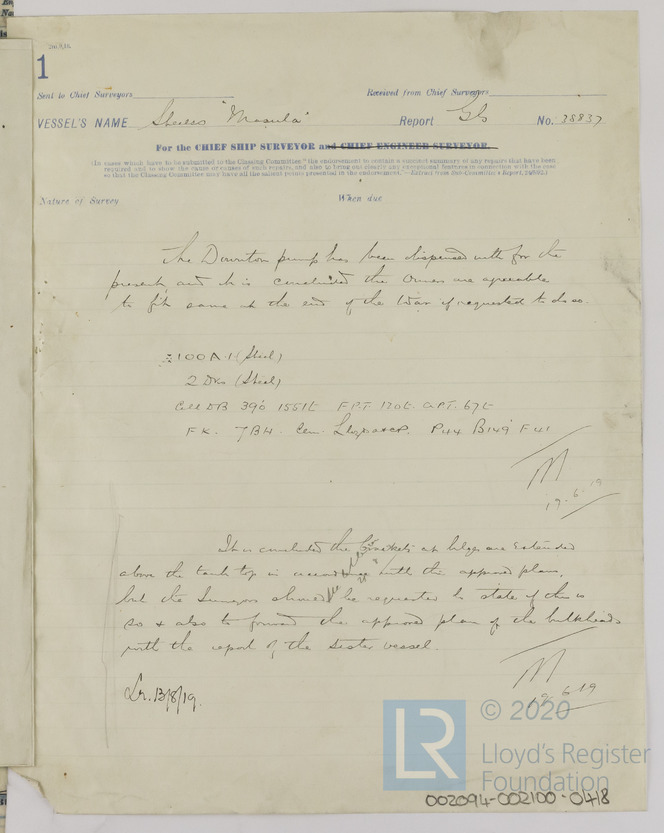 1
Sent to Chief Surveyors
Received from Chief Surveyors
VESSEL'S NAME "Masula" Report Gls No. 38837
For the CHIEF SHIP SURVEYOR and CHIEF ENGINEER SURVEYOR.
(In cases which have to be submitted to the Classing Committee "the endorsement to contain a succinct summary of any repairs that have been
required and to show the cause or causes of such repairs, and also to bring out clearly any exceptional features in connection with the case
so that the Classing Committee may have all the salient points presented in the endorsement."—Extract from Sub-Committee's Report,
Nature of Survey When due
The Downton pump has been dispensed with for the
present, and it is concluded the Owners are agreeable
to fit same at the end of the War if requested to do so.
100A.1 (Steel)
2 Dks (Steel)
Cell DB 390' 1551t FPT 120t. APT. 67t
FK. 7BH. Cem. P44 B149 F41
M
19.6.19
It is concluded the brackets at bilge are extended
above the tank top in accordance with the approved plan,
but the Surveyors should be requested to state if this is
so & also to forward the approved plan of the bulkheads
with the report of the sister vessel.
M
19.6.19
Lr. 13/8/19.
LR
© 2020
Lloyd's Register
Foundation
002094-002100-0418